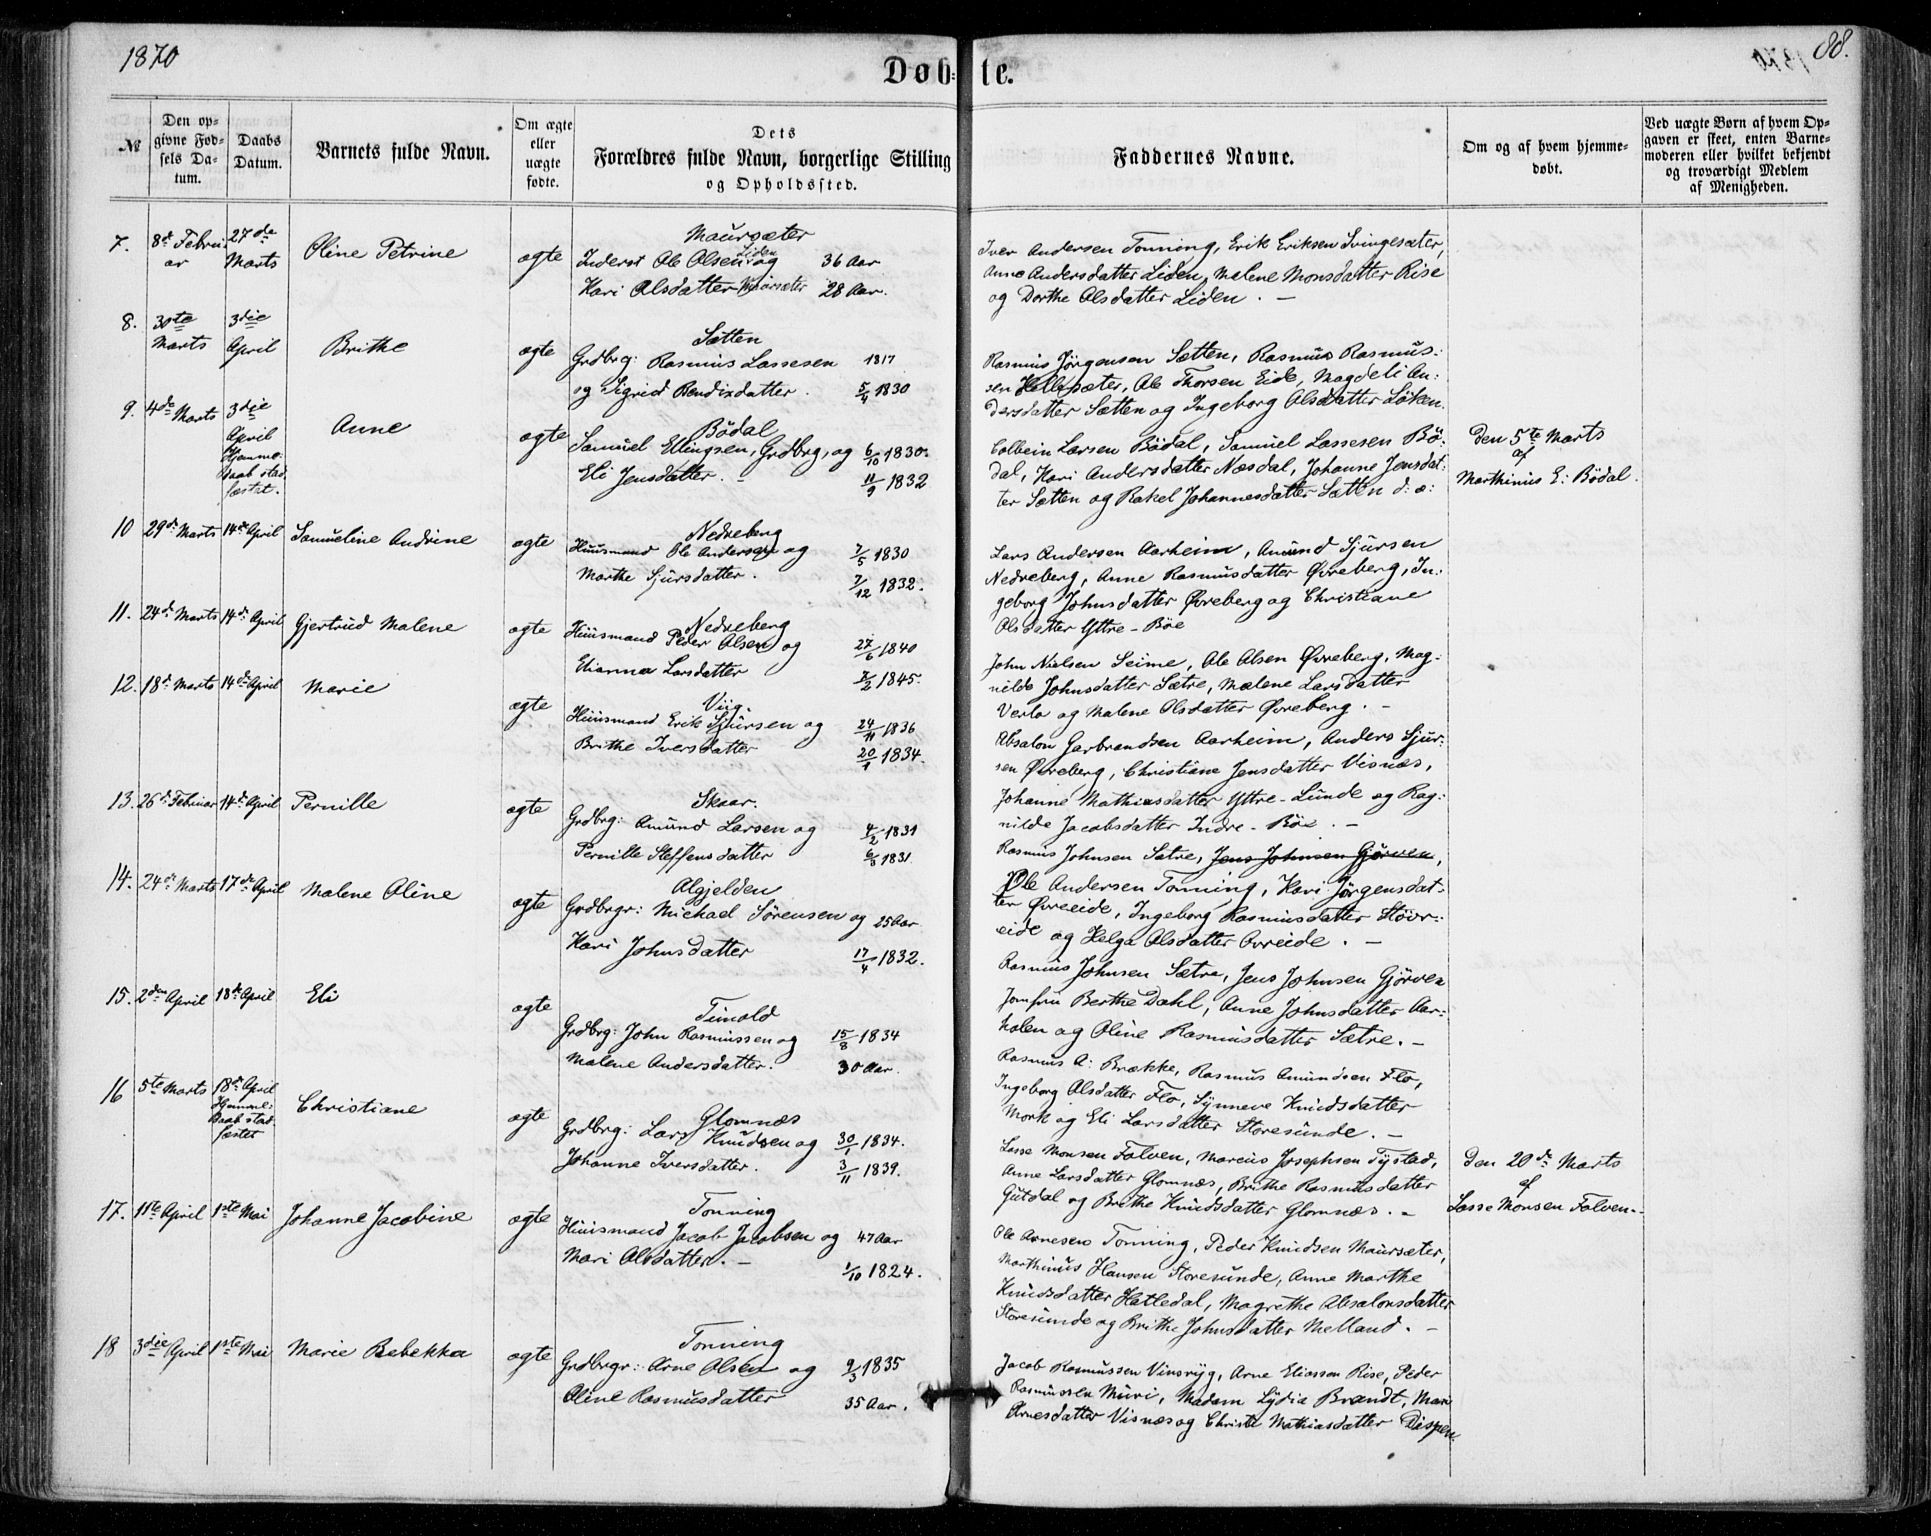 1870
88.
Døbte.
№
Den opgivne Fødsels Datum.
Daabs Datum.
Barnets fulde Navn.
Om ægte eller uægte fødte.
Dets
Forældres fulde Navn, borgerlige Stilling
og Opholdssted.
Faddernes Navne.
Om og af hvem hjemmedøbt.
Ved uægte Børn af hvem Opgaven er skeet, enten Barnemoderen eller hvilket bekjendt og troværdigt Medlem af Menigheden.
7. 8de Februar 27de Marts Oline Petrine ægte
Maursæter
Inderst Ole Olsen Liden og 36 Aar
Kari Olsdatter Maursæter 28 Aar.
Iver Andersen Tonning, Erik Eriksen Svingesæter,
Anne Andersdatter Liden, Malene Monsdatter Rise
og Dorthe Olsdatter Liden. —
8. 30te Marts 3die April Brithe ægte
Sætten
Grdbrg: Rasmus Lassesen 1817
og Sigrid Bendixdatter. 5/4 1830
Rasmus Jörgensen Sætten, Rasmus Rasmus:
sen Hellesæter, Ole Thorsen Eide, Magdeli An:
dersdatter Sætten og Ingeborg Olsdatter Löken.
9. 4de Marts 3die April Hjemmedaab stadfæstet. Anne ægte
Bödal
Samuel Ellingsen, Grdbrg, og 6/10 1830.
Eli Jensdatter. — 11/9 1832
Colbein Larsen Bödal, Samuel Lassesen Bö:
dal, Kari Andersdatter Næsdal, Johanne Jensdat:
ter Sætten og Rakel Johannesdatter Sætten d: æ:
Den 5te Marts
af
Marthinus E: Bödal.
10 29de Marts 14de April Samueline Andrine ægte
Nedreberg
Huusmand Ole Andersen og 7/5 1830
Marthe Sjursdatter. 7/12 1832.
Lars Andersen Aarheim, Amund Sjursen
Nedreberg, Anne Rasmusdatter Øvreberg, In:
geborg Johnsdatter Øvreberg og Christiane
Olsdatter Yttre-Böe
11. 24de Marts 14de April Gjertrud Malene ægte
Nedreberg
Huusmand Peder Olsen og 27/6 1840
Elianna Larsdatter 7/2 1845.
John Nielsen Seime, Ole Olsen Øvreberg, Mag:
nilde Johnsdatter Sætre, Malene Larsdatter
Verlo og Malene Olsdatter Øvreberg. —
12. 18de Marts 14de April Marie ægte
Viig.
Huusmand Erik Sjursen og 24/11 1836
Brithe Iversdatter 20/1 1834.
Absalon Garbrandsen Aarheim, Anders Sjur:
sen Øvreberg, Christiane Jensdatter Visnæs,
Johanne Mathiasdatter Yttre-Lunde og Rag:
nilde Jacobsdatter Indre-Böe. —
13. 26de Februar 14de April Pernille ægte
Skaar.
Grdbrg: Amund Larsen og 4/2 1831
Pernille Steffensdatter 6/3 1831.
Rasmus Johnsen Sætre, Jens Johnsen Gjörven,
Ole Andersen Tonning, Kari Jörgensdat:
ter Øvreeide, Ingeborg Rasmusdatter Stövr:
eide og Helga Olsdatter Ovreide. —
14. 24de Marts 17de April Malene Oline ægte
Algjelden
Grdbrgr: Michael Sörensen og 25 Aar
Kari Johnsdatter 17/4 1832.
Rasmus Johnsen Sætre, Jens Johnsen Gjörven
Jomfru Berthe Dahl, Anne Johnsdatter Aar:
holen og Oline Rasmusdatter Sætre. —
15. 2den April 18de April Eli ægte
Tunold
Grdbrg: John Rasmussen og 15/8 1834
Malene Andersdatter. 30 Aar.
Rasmus A: Brække, Rasmus Amundsen Flo,
Ingeborg Olsdatter Flo, Synneve Knudsdatter
Mork og Eli Larsdatter Storesunde. —
16 5te Marts 18de April Hjemmedaab stadfæstet Christiane ægte
Glomnæs
Grdbrg: Lars Knudsen og 30/1 1834.
Johanne Iversdatter. 3/11 1839.
Lasse Monsen Folven, Marcus Josephsen Tystad,
Anne Larsdatter Glomnæs, Brithe Rasmusdatter
Gutdal og Brethe Knudsdatter Glomnæs. —
Den 20de Marts
af
Lasse Monsen Folven.
17. 11te April 1ste Mai Johanne Jacobine ægte
Tonning
Huusmand Jacob Jacobsen og 47 Aar
Mari Olsdatter. — 1/10 1824.
Ole Arnesen Tonning, Peder Knudsen Maursæter,
Marthinus Hansen Storesunde, Anne Marthe
Knudsdatter Hatledal, Magrethe Absalonsdatter
Storesunde og Brithe Johnsdatter Melland. —
18 3die April 1ste Mai Marie Rebekka ægte
Tonning
Grdbrgr: Arne Olsen og 9/3 1835
Oline Rasmusdatter 35 Aar.
Jacob Rasmussen Vinsryg, Arne Eliassen Rise, Peder
Rasmussen Muri, Madam Lydia Brandt, Mari
Arnesdatter Visnæs og Christi Mathiasdatter Dispen.